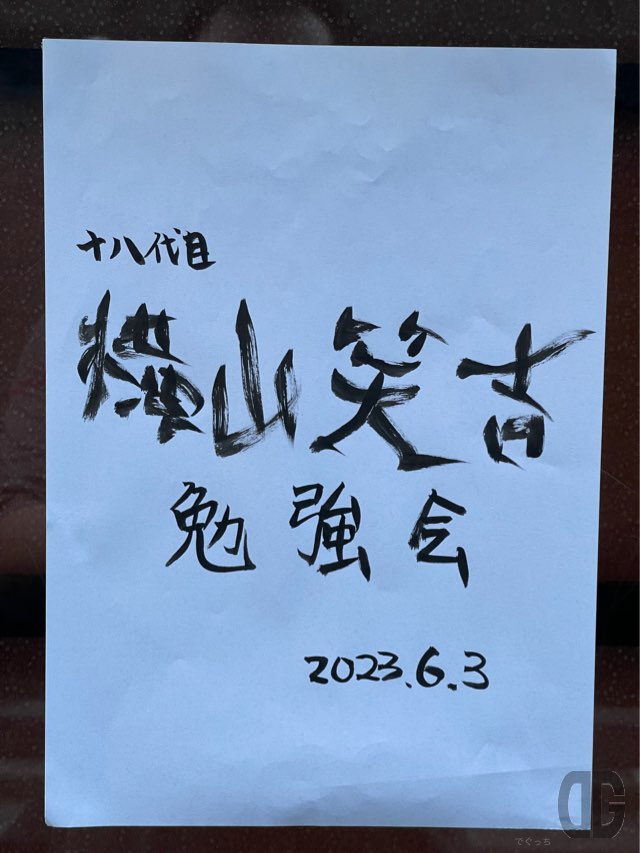 十八代目
横山笑吉
勉強会
2023.6.3
でぐっち